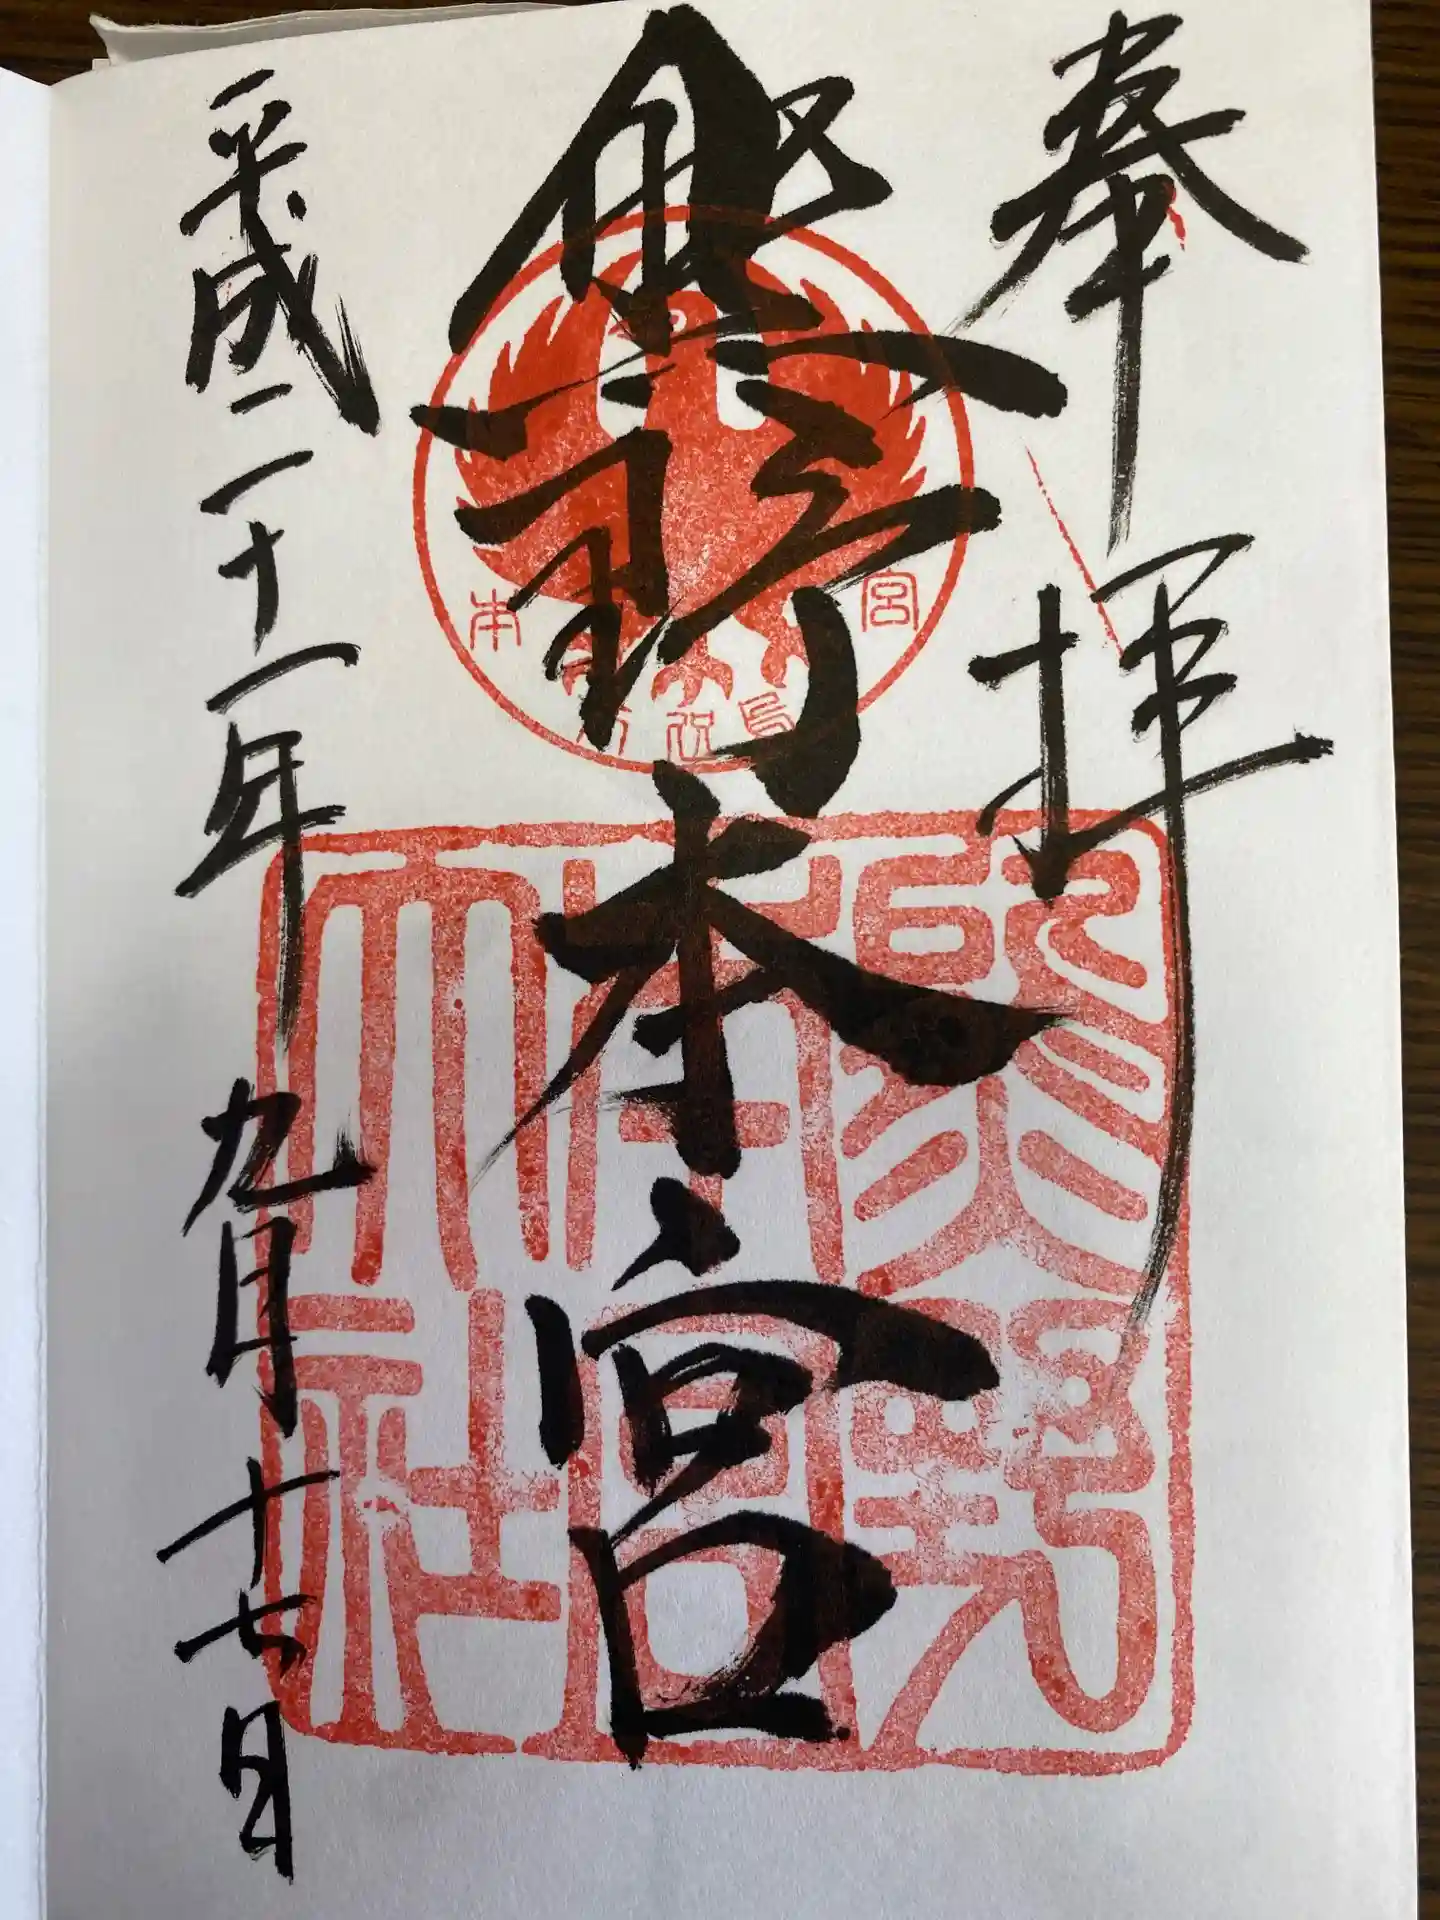 奉拝
熊野本宮
平成二十一年九月十七日
本宮
八咫烏
熊野
本宮
大社